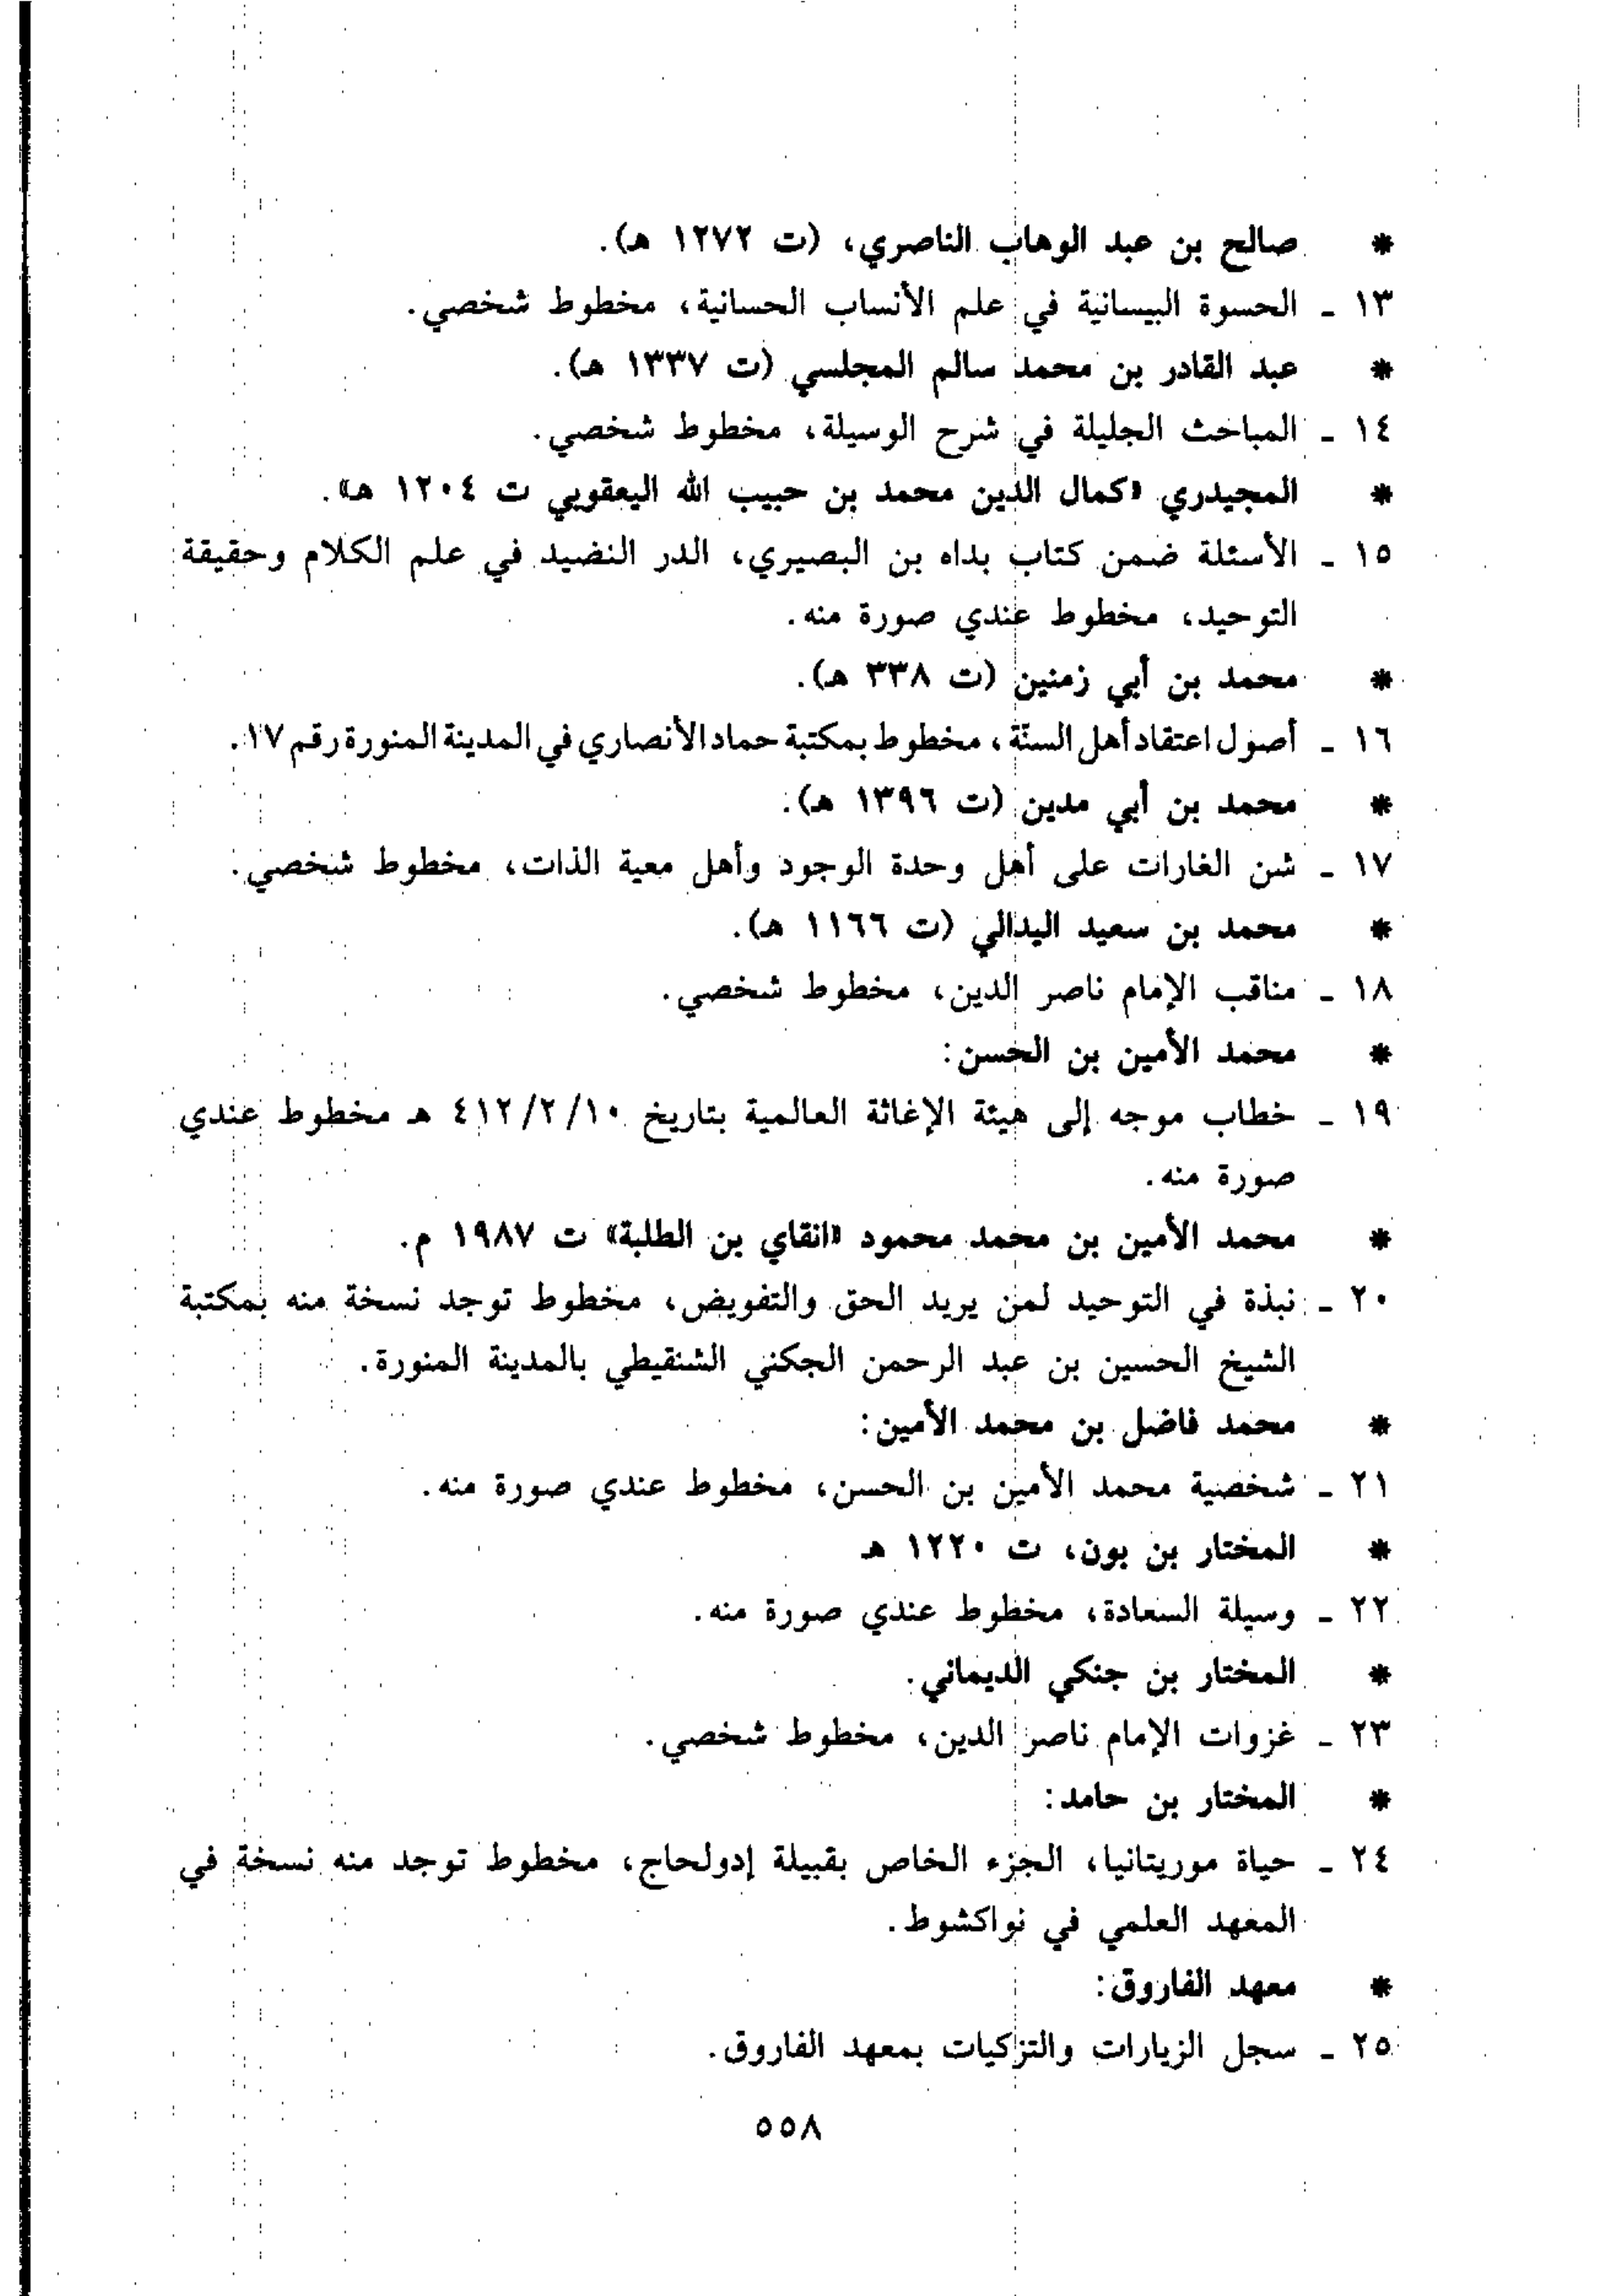 * صالح بن عبد الوهاب الناصري، (ت ١٢٧٢ هـ).
١٣ ـ الحسوة البيسانية في علم الأنساب الحسانية، مخطوط شخصي.
* عبد القادر بن محمد سالم المجلسي (ت ١٣٣٧ هـ).
١٤ ـ المباحث الجليلة في شرح الوسيلة، مخطوط شخصي.
* المجيدري «كمال الدين محمد بن حبيب الله اليعقوبي ت ١٢٠٤ هـ».
١٥ ـ الأسئلة ضمن كتاب بداه بن البصيري، الدر النضيد في علم الكلام وحقيقة
التوحيد، مخطوط عندي صورة منه.
* محمد بن أبي زمنين (ت ٣٣٨ هـ).
١٦ ـ أصول اعتقاد أهل السنّة، مخطوط بمكتبة حماد الأنصاري في المدينة المنورة رقم ١٧.
* محمد بن أبي مدين (ت ١٣٩٦ هـ).
١٧ ـ شن الغارات على أهل وحدة الوجود وأهل معية الذات، مخطوط شخصي.
* محمد بن سعيد اليدالي (ت ١١٦٦ هـ).
١٨ ـ مناقب الإمام ناصر الدين، مخطوط شخصي.
* محمد الأمين بن الحسن:
١٩ ـ خطاب موجه إلى هيئة الإغاثة العالمية بتاريخ ٤١٢/٢/١٠ هـ مخطوط عندي
صورة منه.
* محمد الأمين بن محمد محمود «انقاي بن الطلبة» ت ١٩٨٧ م.
٢٠ ـ نبذة في التوحيد لمن يريد الحق والتفويض، مخطوط توجد نسخة منه بمكتبة
الشيخ الحسين بن عبد الرحمن الجكني الشنقيطي بالمدينة المنورة.
* محمد فاضل بن محمد الأمين:
٢١ ـ شخصية محمد الأمين بن الحسن، مخطوط عندي صورة منه.
* المختار بن بون، ت ١٢٢٠ هـ
٢٢ ـ وسيلة السعادة، مخطوط عندي صورة منه.
* المختار بن جنكي الديماني.
٢٣ ـ غزوات الإمام ناصر الدين، مخطوط شخصي.
* المختار بن حامد:
٢٤ ـ حياة موريتانيا، الجزء الخاص بقبيلة إدولحاج، مخطوط توجد منه نسخة في
المعهد العلمي في نواكشوط.
* معهد الفاروق:
٢٥ ـ سجل الزيارات والتزكيات بمعهد الفاروق.
٥٥٨